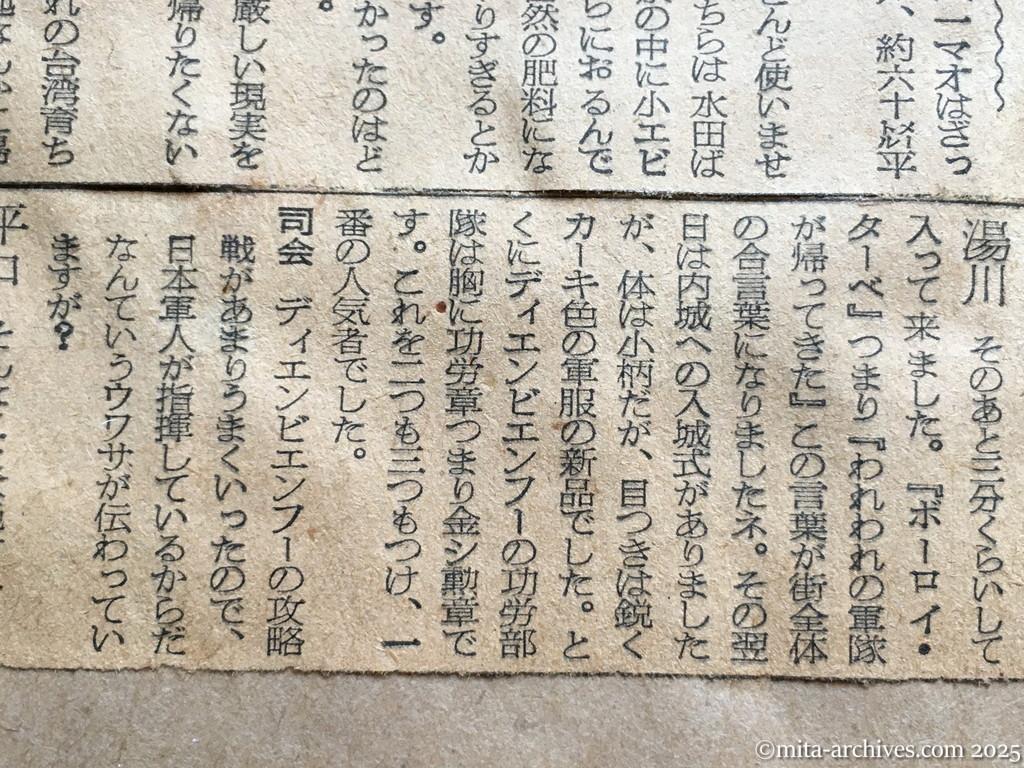 一マオはざっ
、約六十㍍平
とんど使いませ
ちらは 水田ば
の中に小エビ
らにおるんで
然の肥料にな
りすぎるとか
す。
かったのはど
。
厳しい現実を
帰りたくない
れの台湾育ち
湯川 そのあと三分くらいして
入って来ました。『ボーロイ・
ターベ』つまり『われわれの軍隊
が帰ってきた』この言葉が街全体
の合言葉になりましたネ。その翌
日は内城への入城式がありました
が、体は小柄だが、目つきは鋭く
カーキ色の軍服の新品でした。と
くにディエンビエンフーの功労部
隊は胸に功労章つまり金シ勳章で
す。これを二つも三つもつけ、一
番の人気者でした。
司会 ディエンビエンフーの攻略
戦があまりうまくいったので、
日本軍人が指揮しているからだ
なんていうウワサが伝わってい
ますが?
©mita-archives.com 2025